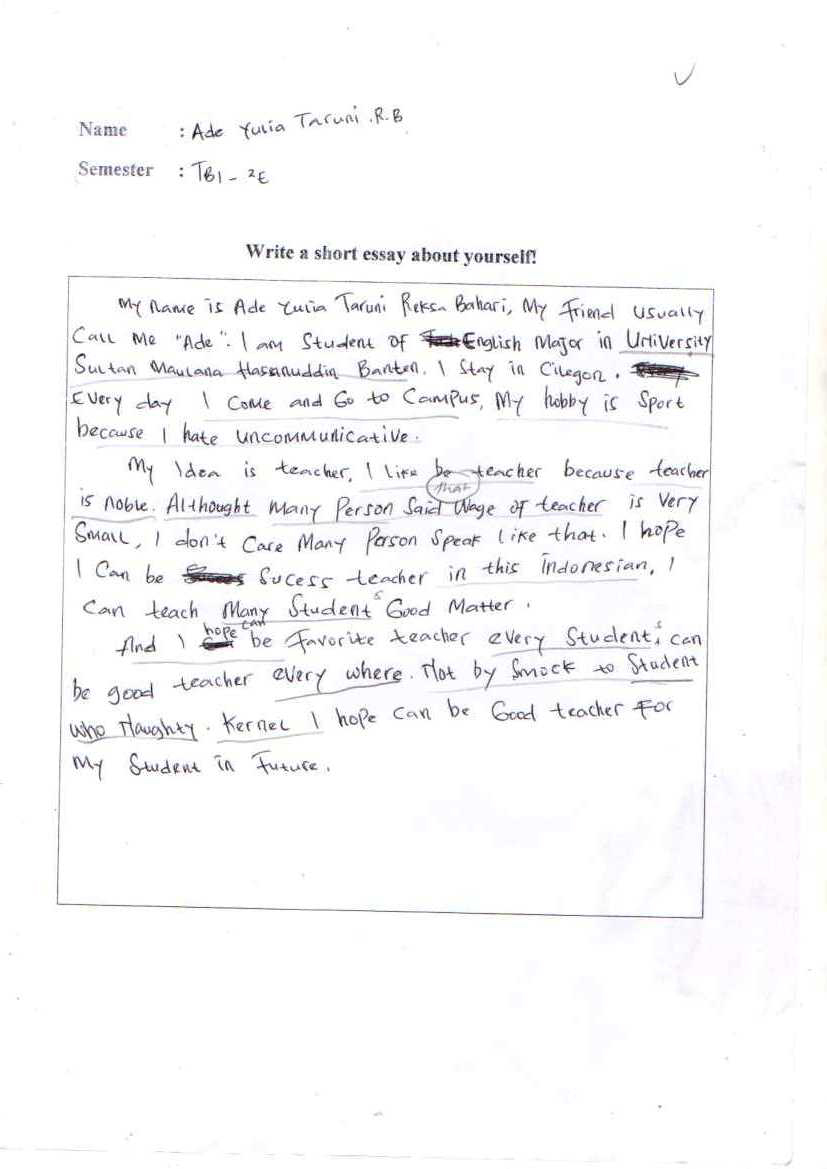 Name : Ade Yulia Taruni .R.B
Semester : TBI - 2E
Write a short essay about yourself!
My name is Ade Yulia Taruni Reksa Bahari, My friend usually
Call Me "Ade". I am Student of English Major in University
Sultan Maulana Hasanuddin Banten. I Stay in Cilegon.
Every day I Come and Go to Campus, My hobby is Sport
because I hate uncommunicative.
My Idea is teacher, I like be teacher because teacher
that
is noble. Althought Many Person Said Wage of teacher is Very
Small, I don't Care Many Person Speak like that. I hope
I Can be Sucess teacher in this indonesian, I
Can teach Many Students Good Matter.
hope can
And I be Favorite teacher every Students, can
be good teacher every where. Not by Smock to Student
who Naughty. Kernel I hope can be Good teacher For
My Student in Future.